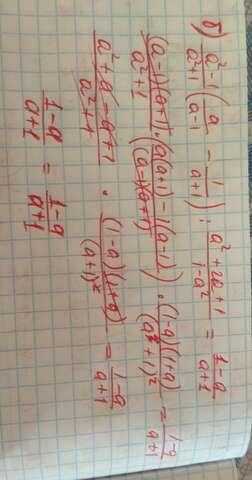 б) (a²-1)/(a²+1) (a/(a-1) - 1/(a+1)) : (a²+2a+1)/(1-a²) = (1-a)/(a+1)
((a-1)(a+1))/(a²+1) · (a(a+1)-1(a-1))/((a-1)(a+1)) · ((1-a)(1+a))/(a+1)² = (1-a)/(a+1)
(a²+a-a+1)/(a²+1) · ((1-a)(1+a))/(a+1)² = (1-a)/(a+1)
(1-a)/(a+1) = (1-a)/(a+1)